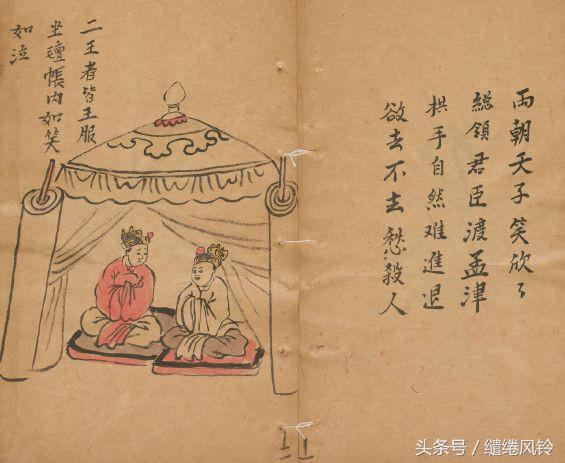 両朝天子笑欣々
緫領君臣渡孟津
拱手自然難進退
欲去不去愁殺人
二王者皆王服
坐壇帳内如笑
如泣
头条号 / 缱绻风铃